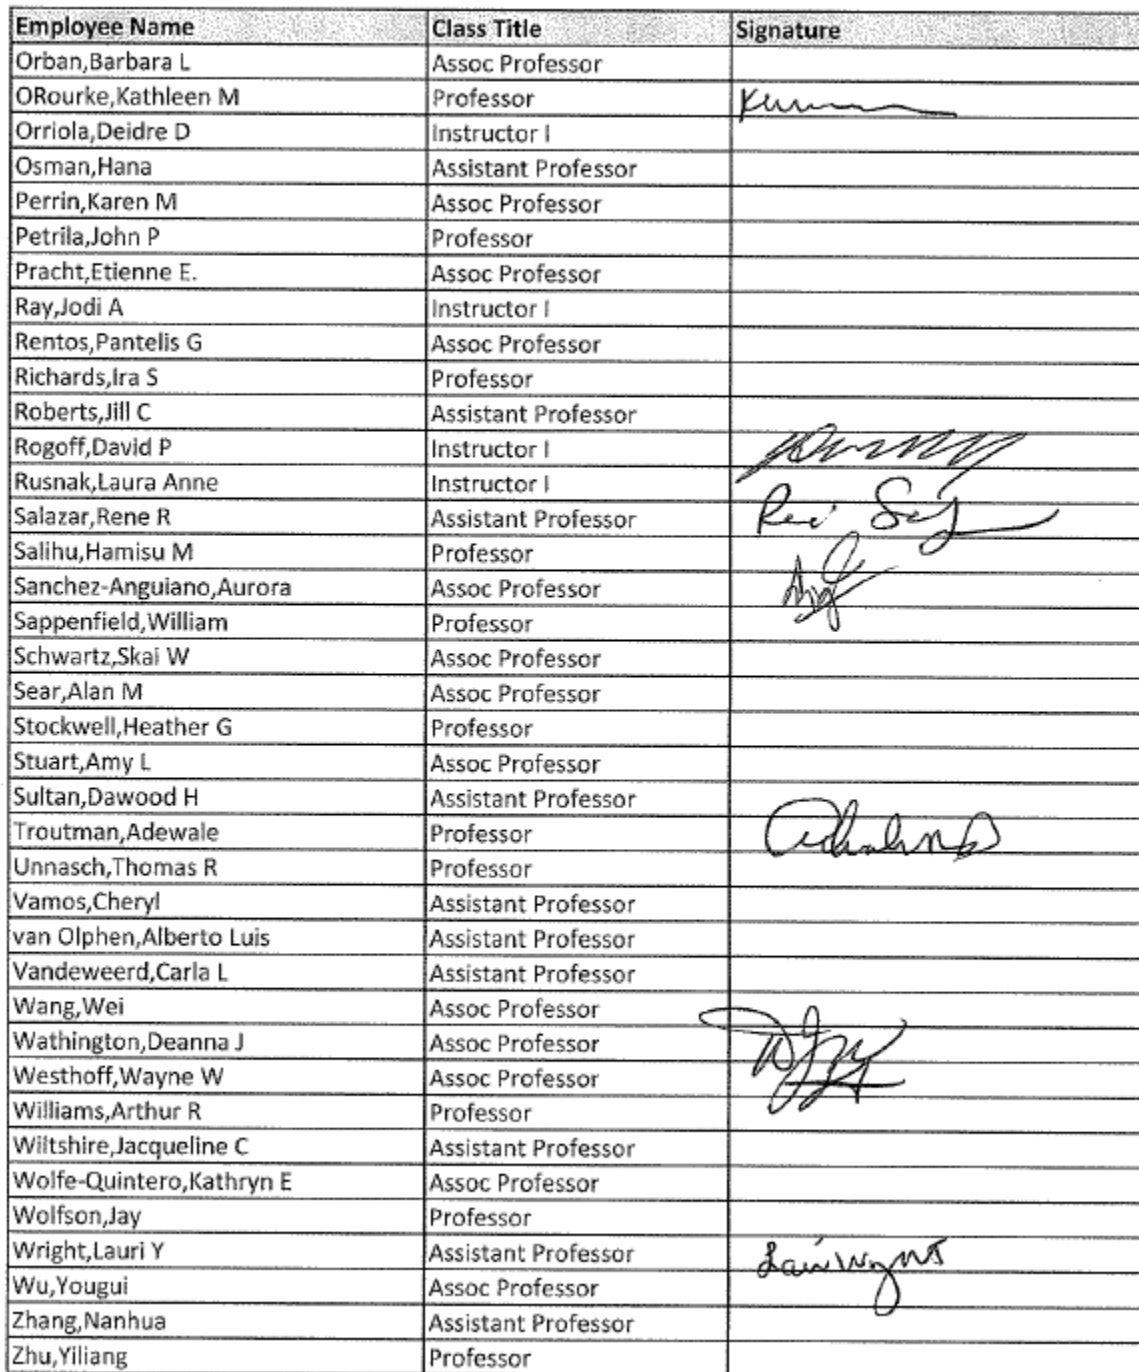 Employee Name Class Title Signature
Orban,Barbara L Assoc Professor
ORourke,Kathleen M Professor
Orriola,Deidre D Instructor I
Osman,Hana Assistant Professor
Perrin,Karen M Assoc Professor
Petrila,John P Professor
Pracht,Etienne E. Assoc Professor
Ray,Jodi A Instructor I
Rentos,Pantelis G Assoc Professor
Richards,Ira S Professor
Roberts,Jill C Assistant Professor
Rogoff,David P Instructor I
Rusnak,Laura Anne Instructor I
Salazar,Rene R Assistant Professor
Salihu,Hamisu M Professor
Sanchez-Anguiano,Aurora Assoc Professor
Sappenfield,William Professor
Schwartz,Skai W Assoc Professor
Sear,Alan M Assoc Professor
Stockwell,Heather G Professor
Stuart,Amy L Assoc Professor
Sultan,Dawood H Assistant Professor
Troutman,Adewale Professor
Unnasch,Thomas R Professor
Vamos,Cheryl Assistant Professor
van Olphen,Alberto Luis Assistant Professor
Vandeweerd,Carla L Assistant Professor
Wang,Wei Assoc Professor
Wathington,Deanna J Assoc Professor
Westhoff,Wayne W Assoc Professor
Williams,Arthur R Professor
Wiltshire,Jacqueline C Assistant Professor
Wolfe-Quintero,Kathryn E Assoc Professor
Wolfson,Jay Professor
Wright,Lauri Y Assistant Professor
Wu,Yougui Assoc Professor
Zhang,Nanhua Assistant Professor
Zhu,Yiliang Professor